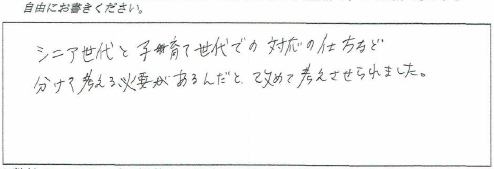 自由にお書きください。
シニア世代と子育て世代での対応の仕方など
分けて考える必要があるんだと、改めて考えさせられました。